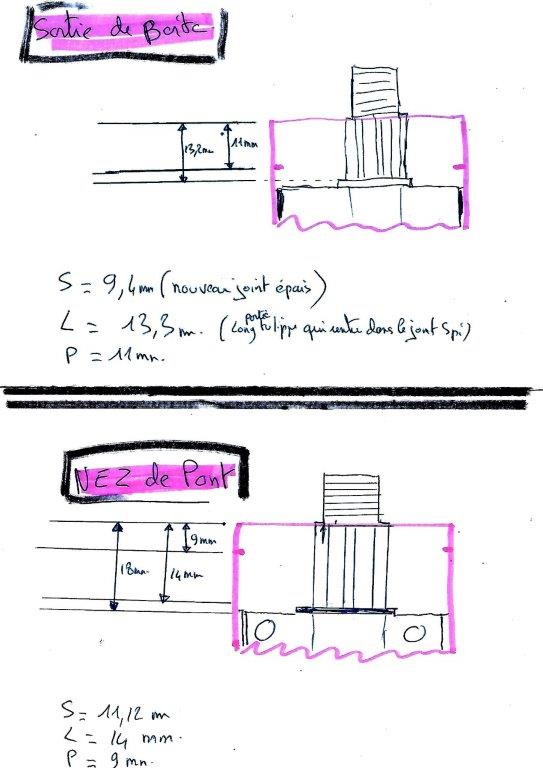 Sortie de Boite
13,2mm 11mm
S = 9,4mm (nouveau joint épais)
L = 13,3mm. (Long portée tulippe qui rentre dans le joint Spi)
P = 11mm.
NEZ de Pont
9mm
18mm 14mm
S = 11,12 m
L = 14 mm.
P = 9mm.